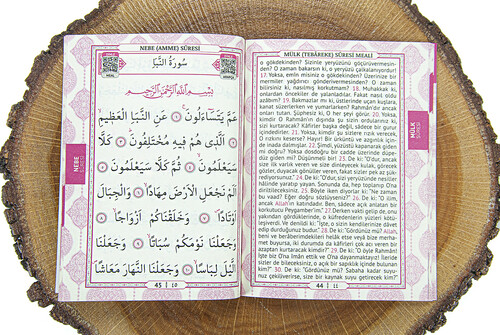 NEBE (AMME) SÛRESİ
سُورَةُ النَّبَأِ
بِسْمِ اللّٰهِ الرَّحْمٰنِ الرَّحِيمِ
عَمَّ يَتَسَٓاءَلُونَۚ ﴿١﴾ عَنِ النَّبَأِ الْعَظ۪يمِۙ
﴿٢﴾ اَلَّذ۪ي هُمْ ف۪يهِ مُخْتَلِفُونَۜ ﴿٣﴾ كَلَّا
سَيَعْلَمُونَۙ ﴿٤﴾ ثُمَّ كَلَّا سَيَعْلَمُونَ ﴿٥﴾
اَلَمْ نَجْعَلِ الْاَرْضَ مِهَادًاۙ ﴿٦﴾ وَالْجِبَالَ
اَوْتَادًاۖ ﴿٧﴾ وَخَلَقْنَاكُمْ اَزْوَاجًاۙ ﴿٨﴾
وَجَعَلْنَا نَوْمَكُمْ سُبَاتًاۙ ﴿٩﴾ وَجَعَلْنَا
الَّيْلَ لِبَاسًاۙ ﴿١٠﴾ وَجَعَلْنَا النَّهَارَ مَعَاشًاۖ
NEBE
45 10
MÜLK (TEBÂREKE) SÛRESİ MEALİ
o gökdekinden? Sizinle yeryüzünü göçürüvermesin-
den? O zaman bakarsın ki, o yeryüzü çalkalanıyordur!
17. Yoksa, emin misiniz o gökdekinden? Üzerinize bir
mermiler yağdırıcı gönderivermesinden? O zaman
bilirsiniz ki, nasılmış korkutmam? 18. Muhakkak ki,
onlardan öncekiler de yalanladılar. Fakat nasıl oldu
azâbım? 19. Bakmazlar mı ki, üstlerinde uçan kuşlara,
kanat süzerlerken ve yumarlarken? Rahmân'dır ancak
onları tutan. Şüphesiz ki, O her şeyi görür. 20. Yoksa,
kimdir O Rahmân'ın dışında şu sizin ordularınız ki,
sizi kurtaracak? Kâfirler başka değil, sâdece bir gurur
içindedirler. 21. Yoksa, kimdir şu sizlere rızık verecek,
O rızkını keserse? Hayır! Bir ürkünç ve azgınlık için-
de inada dalmışlar. 22. Şimdi, yüzüstü kapanarak giden
mi doğru? Yoksa dosdoğru bir cadde üzerinde düpe-
düz giden mi? Düşünmeli bir! 23. De ki: "O'dur, ancak
size ilk varlık veren ve size dinleyecek kulak, görecek
gözler, duyacak gönüller veren, fakat sizler pek az şük-
rediyorsunuz." 24. De ki: "O'dur, sizi yeryüzünde nesiller
hâlinde yaratıp yayan. Sonunda da, hep toplanıp O'na
dirilteleceksiniz. 25. Böyle iken diyorlar ki: "Ne zaman
bu vaad? Eğer doğru söylüyseniz?" 26. De ki: "O ilim,
ancak Allah'ın katındadır. Ben, sâdece açık anlatan bir
korkutucu Peygamber'im." 27. Derken vakti gelip de, onu
yakından gördüklerinde, o küfredenlerin yüzleri kötü-
leşiverdi. Ve denildi ki: "İşte, o sizin kendilerinize dâvet
edip durduğunuz budur." 28. De ki: "Gördünüz mü? Allah,
beni ve berâberimdekileri helâk etse veya bize merha-
met buyursa, iki durumda da kâfirleri çok acı veren bir
azaptan kurtaracak kimdir?" 29. De ki: "O öyle Rahmân!
İşte biz O'na îmân ettik ve O'na dayanmaktayız! İleride
sizler de bileceksiniz, o açık bir sapıklık içinde bulunan
kim?" 30. De ki: "Gördünüz mü? Sabaha kadar suyu-
nuz çekiliverirse, size bir kaynak suyu getirecek kim?"
MÜLK
44 11